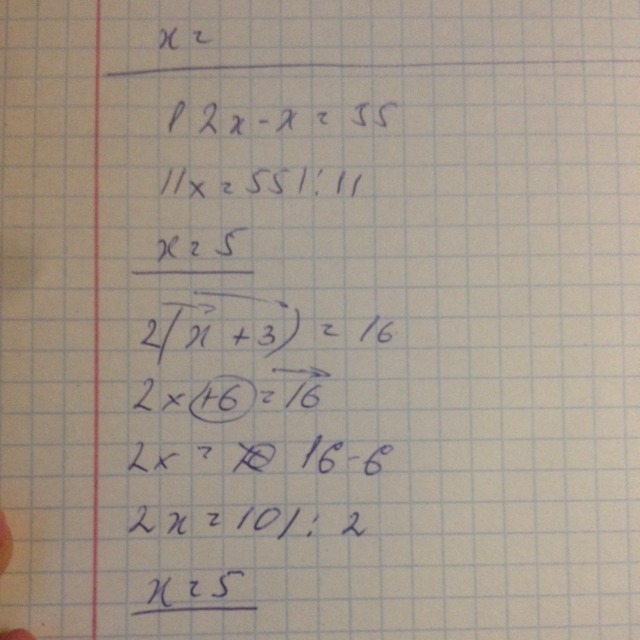 x =
12x - x = 55
11x = 55 | : 11
x = 5
2(x + 3) = 16
2x + 6 = 16
2x = 16 - 6
2x = 10 | : 2
x = 5